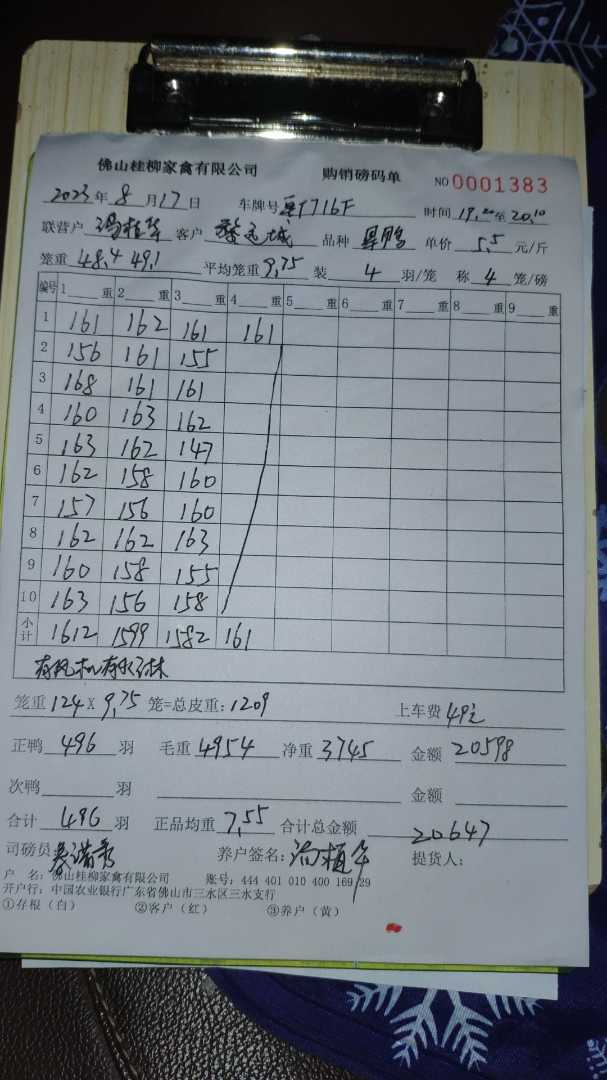 佛山桂柳家禽有限公司 购销磅码单 NO 0001383
2023年8月17日 车牌号 T716F 时间 19.20至20.10
联营户 客户 品种 单价 5.5 元/斤
笼重 48.4 49.1 平均笼重 9.75 装 4 羽/笼 称 4 笼/磅
编号 1 重 2 重 3 重 4 重 5 重 6 重 7 重 8 重 9 重
1 161 162 161 161
2 156 161 155
3 168 161 161
4 160 163 162
5 163 162 147
6 162 158 160
7 157 156 160
8 162 162 163
9 160 158 155
10 163 156 158
小计 1612 1599 1582 161
有风机有水淋
笼重 124 X 9.75 笼=总皮重:1209 上车费 49元
正鸭 496 羽 毛重 4954 净重 3745 金额 20598
次鸭 羽 金额
合计 496 羽 正品均重 7.55 合计总金额 20647
司磅员 养户签名: 提货人:
户 名:佛山桂柳家禽有限公司 账号:444 401 010 400 169 29
开户行:中国农业银行广东省佛山市三水区三水支行
①存根(白) ②客户(红) ③养户(黄)